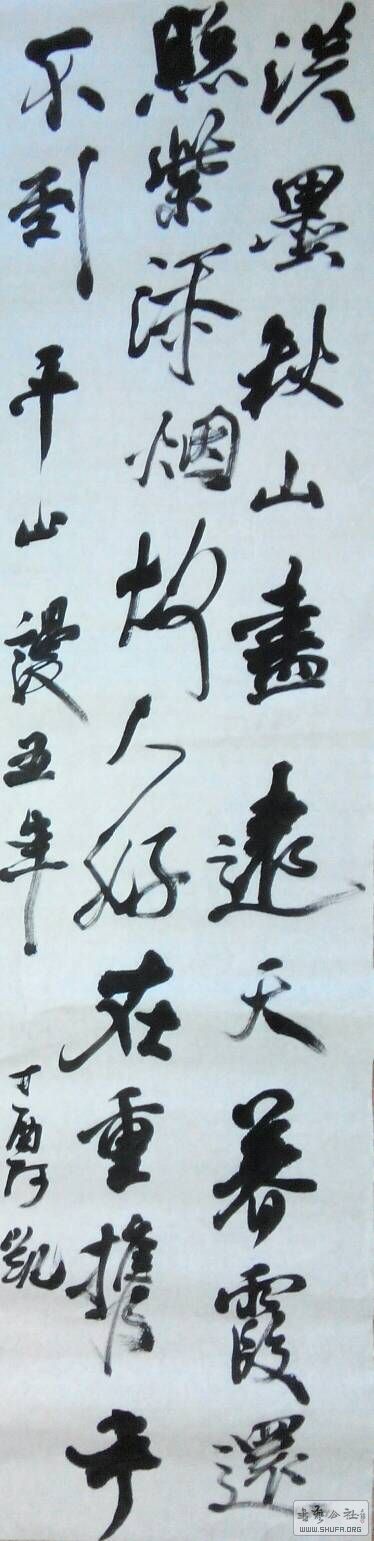 淡墨秋山盡遠天暮霞還
照紫添烟故人好在重攜手
不到平山謾五年
丁酉阿凱
书法公社
WWW.SHUFA.ORG